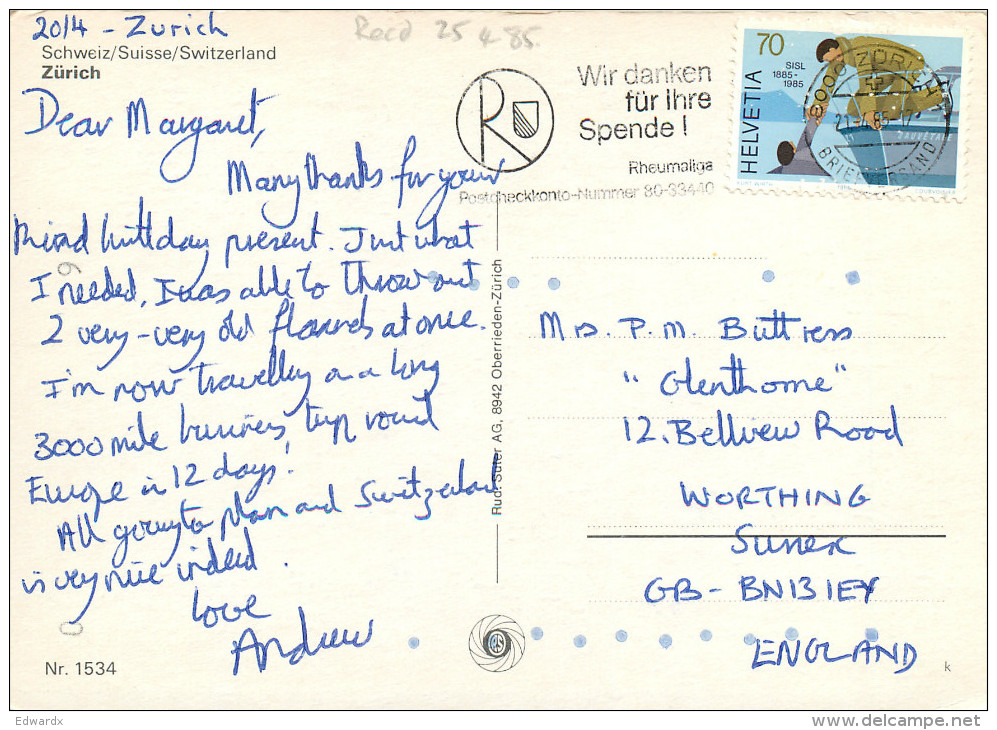 20/4 - Zurich
Recd 25 4 85.
Schweiz/Suisse/Switzerland
Zürich
Dear Margaret,
Many thanks for your
kind birthday present. Just what
I needed, I was able to throw out
2 very-very old flannels at once.
I'm now travelling on a long
3000 mile business trip round
Europe in 12 days!
All going to plan and Switzerland
is very nice indeed.
Love
Andrew
Nr. 1534
Rud. Suter AG, 8942 Oberrieden-Zürich
R
Wir danken
für Ihre
Spende!
Rheumaliga
Postcheckkonto-Nummer 80-33440
70
SISL
1885-
1985
HELVETIA
SAUVETAGE
8000 ZÜRICH
BRIEFVERSAND
Mrs. P.M. Buttress
"Glenthorne"
12. Bellview Road
WORTHING
Sussex
GB - BN13 1EY
ENGLAND
k
Edwardx
delcampe.net